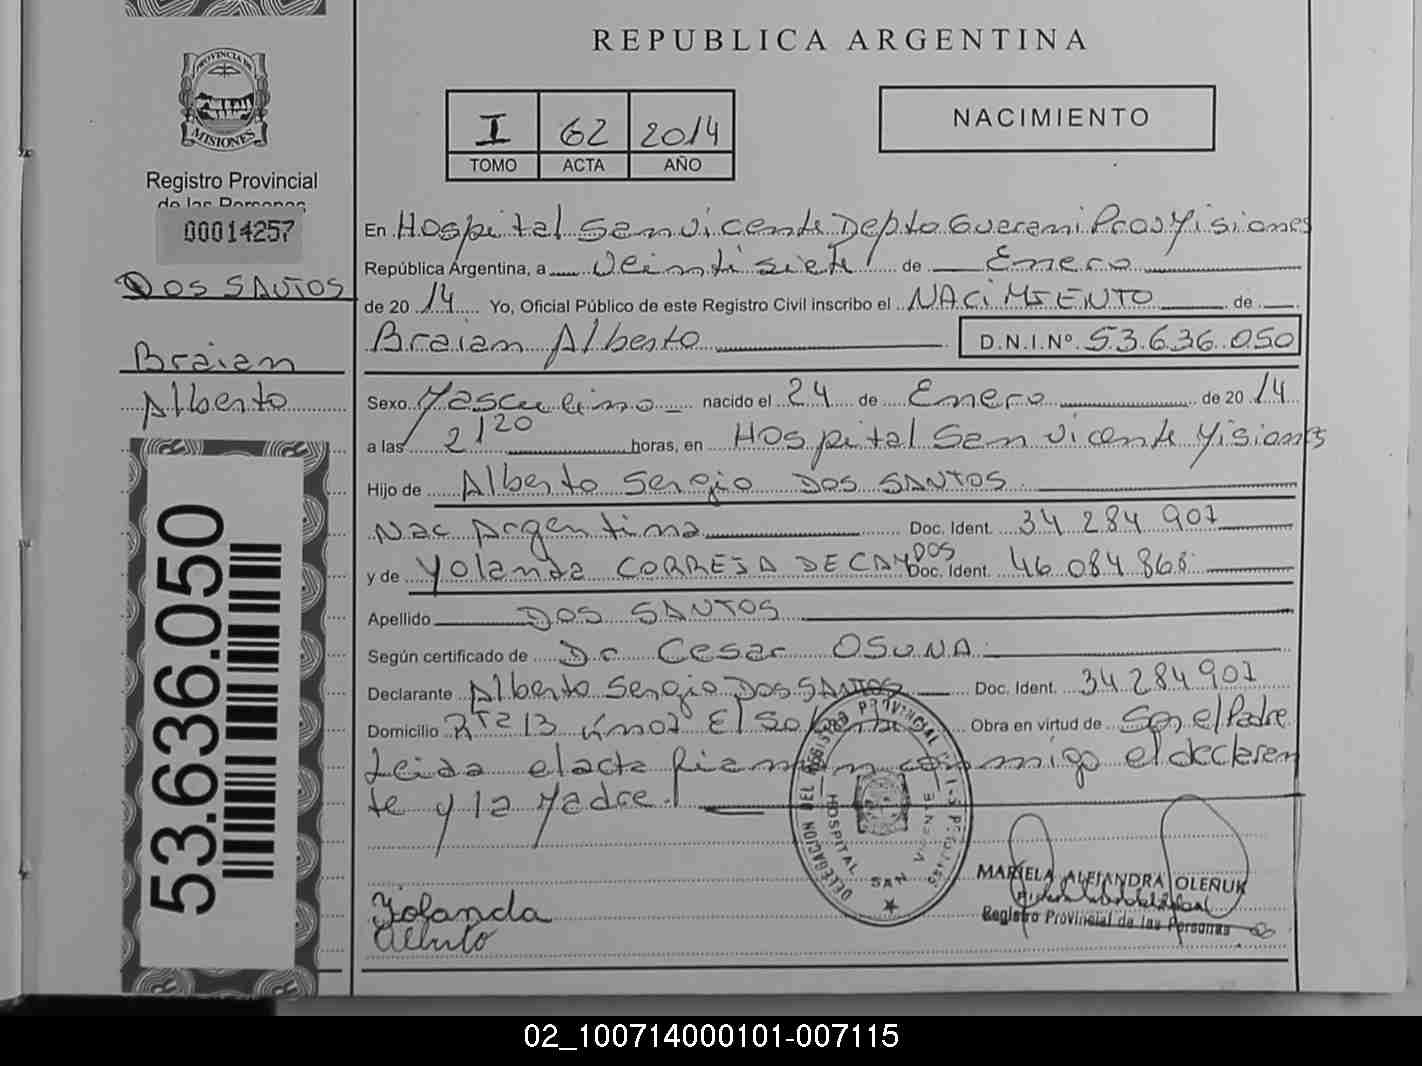 REPUBLICA ARGENTINA
PROVINCIA DE
MISIONES
Registro Provincial
de las Personas
00014257
DOS SANTOS
Braian
Alberto
53.636.050
I 62 2014
TOMO ACTA AÑO
NACIMIENTO
En Hospital San Vicente Depto Guarani Prov Misiones
República Argentina, a veintisiete de Enero
de 2014 Yo, Oficial Público de este Registro Civil inscribo el NACIMIENTO de
Braian Alberto D.N.I.Nº 53.636.050
Sexo Masculino nacido el 24 de Enero de 2014
a las 21 20 horas, en Hospital San Vicente Misiones
Hijo de Alberto Sergio DOS SANTOS
Nac Argentina Doc. Ident. 34 284 907
y de Yolanda CORREJA DE CAMPOS Doc. Ident. 46 084 868
Apellido DOS SANTOS
Según certificado de Dr Cesar OSUNA
Declarante Alberto Sergio DOS SANTOS Doc. Ident. 34 284 907
Domicilio 13 Km 07 El Soberbio Obra en virtud de Ser el Padre
Leida el acta firman conmigo el declaran
te y la Madre.
DELEGACION DEL REGISTRO PROVINCIAL
HOSPITAL SAN
Yolanda
Alberto
MARIELA ALEJANDRA OLEÑUK
Registro Provincial de las Personas
02_100714000101-007115